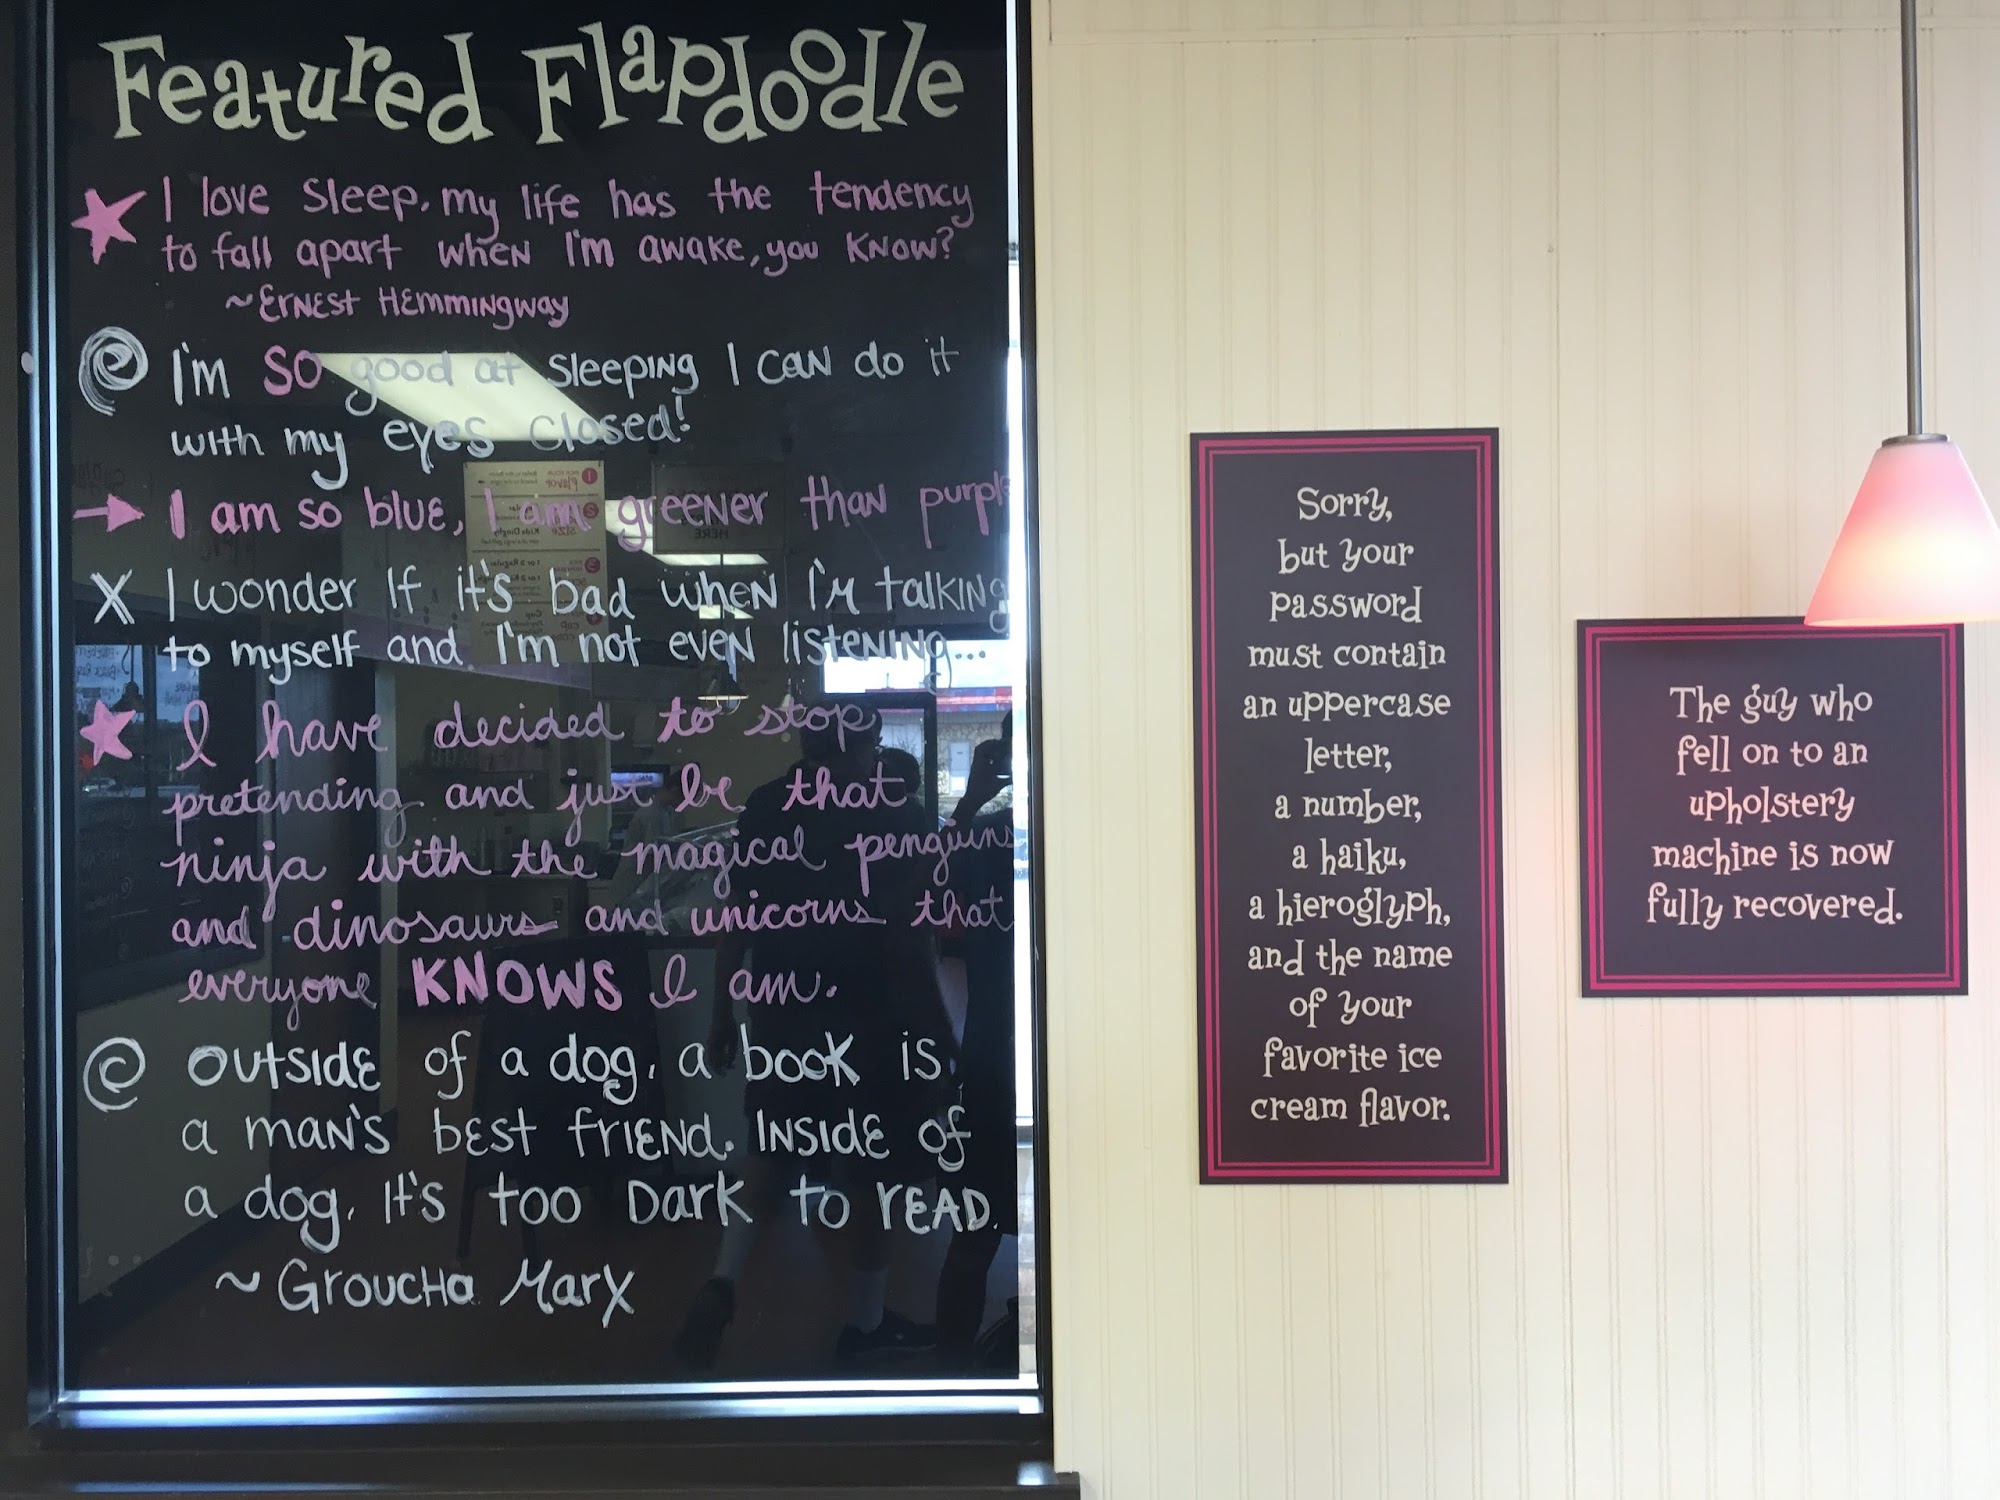 Featured Flapdoodle
I love sleep, my life has the tendency
to fall apart when I'm awake, you know?
~Ernest Hemmingway
I'm SO good at sleeping I can do it
with my eyes closed!
I am so blue, I am greener than purple
X I wonder If it's bad when I'm talking
to myself and I'm not even listening...
I have decided to stop
pretending and just be that
ninja with the magical penguins
and dinosaurs and unicorns that
everyone KNOWS I am.
Outside of a dog, a book is
a man's best friend. Inside of
a dog, It's too Dark to read.
~ Groucha Marx
Sorry,
but your
password
must contain
an uppercase
letter,
a number,
a haiku,
a hieroglyph,
and the name
of your
favorite ice
cream flavor.
The guy who
fell on to an
upholstery
machine is now
fully recovered.